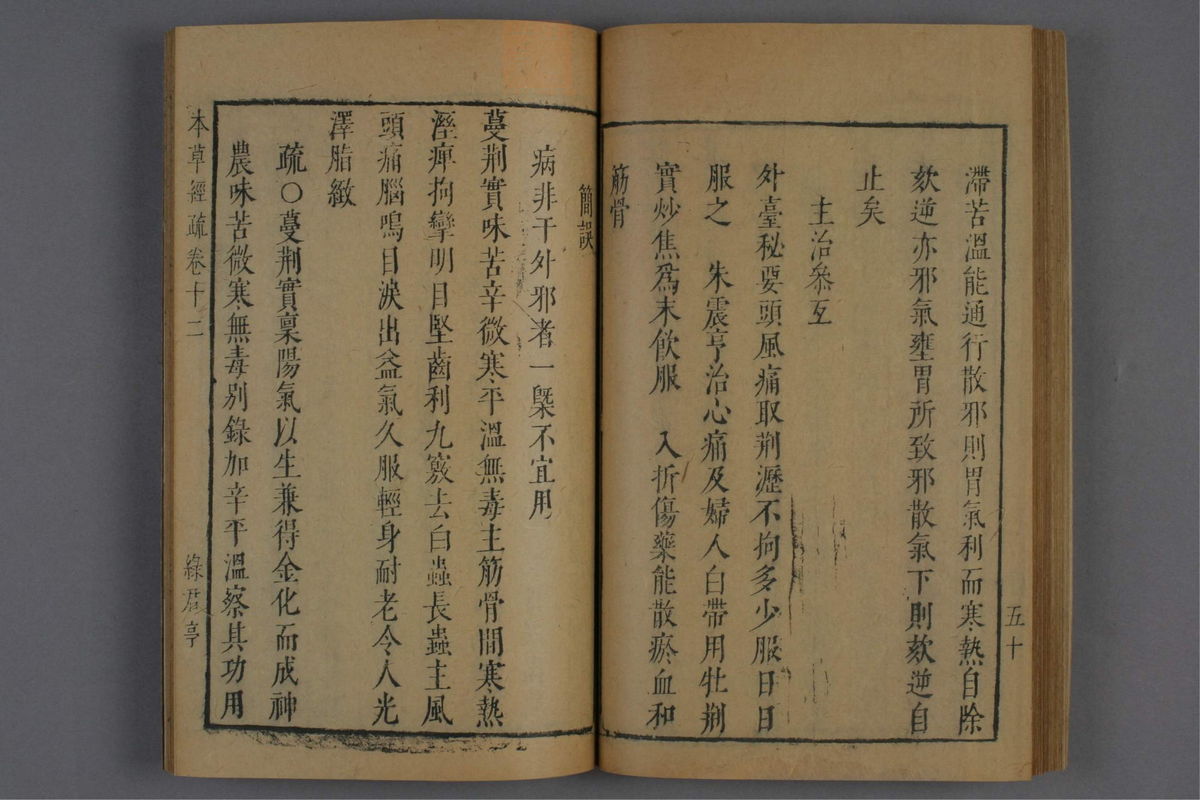 滯苦溫能通行散邪則胃氣利而寒熱自除
欬逆亦邪氣壅胃所致邪散氣下則欬逆自
止矣
主治叅互
外臺秘要頭風痛取荆瀝不拘多少服日日
服之 朱震亨治心痛及婦人白帶用牡荆
實炒焦爲末飲服 入折傷藥能散瘀血和
筋骨
五十
簡誤
病非干外邪者一槩不宜用
蔓荆實味苦辛微寒平溫無毒主筋骨間寒熱
溼痺拘攣明目堅齒利九竅去白蟲長蟲主風
頭痛腦鳴目淚出益氣久服輕身耐老令人光
澤脂緻
疏○蔓荆實稟陽氣以生兼得金化而成神
農味苦微寒無毒别錄加辛平溫察其功用
本草經疏卷十二
綠君亭